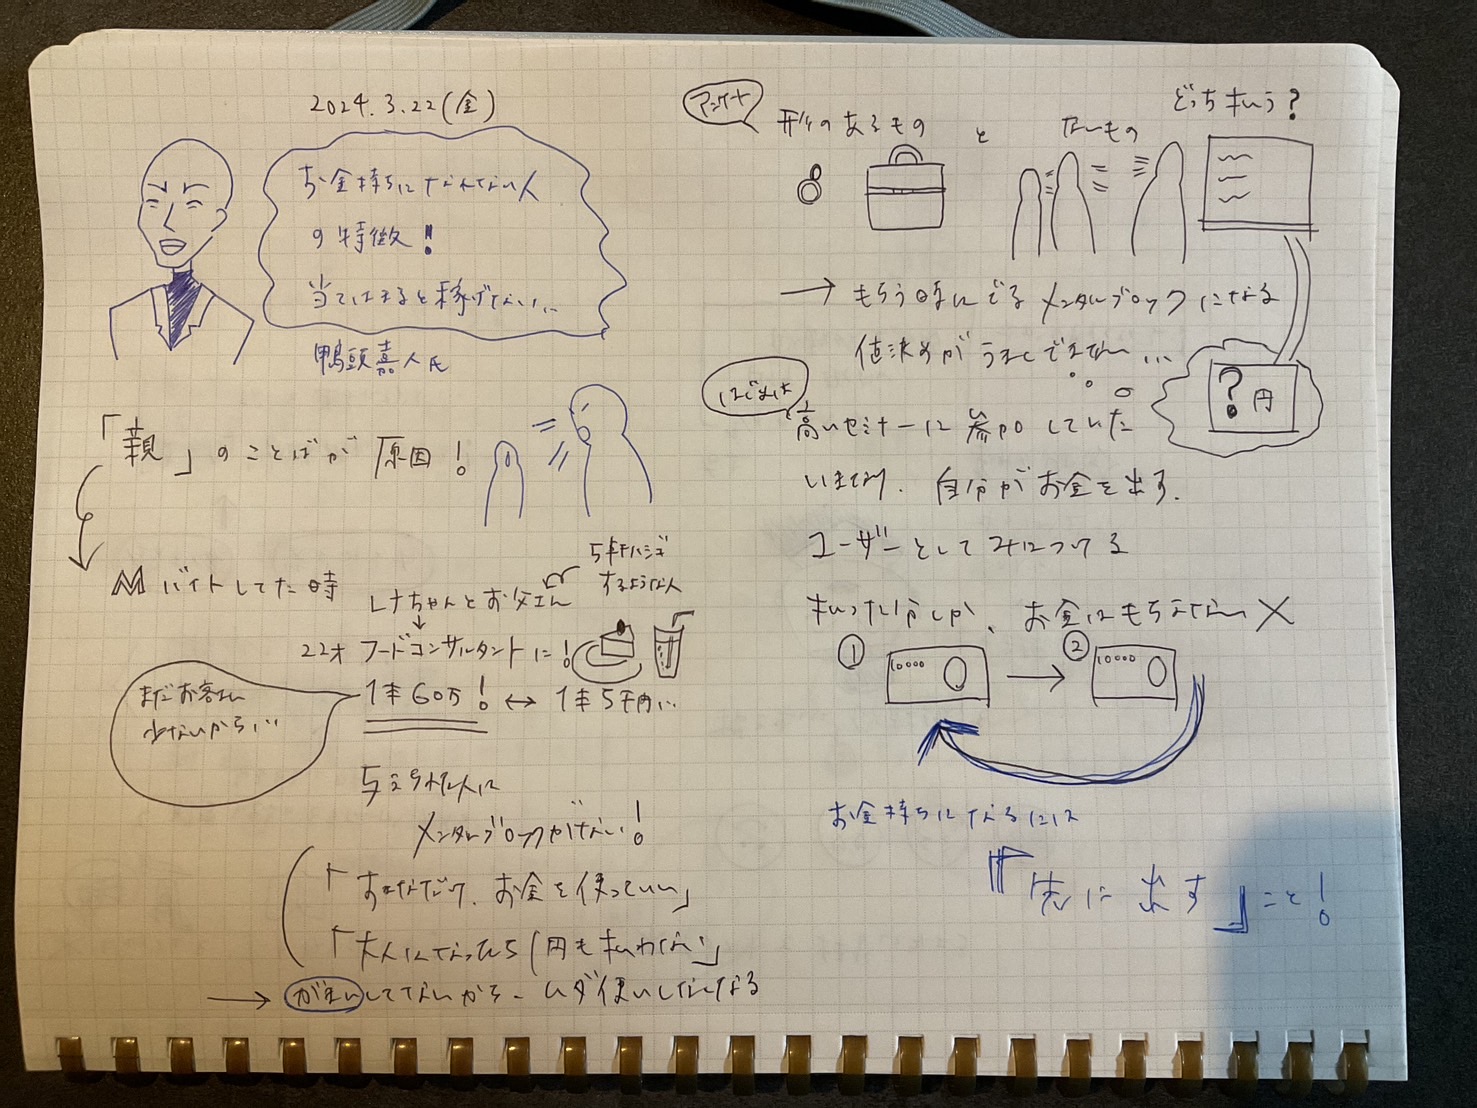 2024.3.22(金)
お金持ちになれない人
の特徴!
当てはまると稼げない…
鴨頭嘉人氏
「親」のことばが原因!
Mバイトしてた時
レナちゃんとお父さん
5千円ハシゴ
するような人
22才 フードコンサルタントに!
1本60万! ↔ 1本5千円…
まだお客さん
少ないから…
与えられた人に
メンタルブロックがない!
「すきなだけ、お金を使っていい」
「大人になったら1円も払わない」
→ がまんしてないから、ムダ使いしなくなる
アンケート
形のあるもの と ないもの
どっち払う?
→ もらう時にでるメンタルブロックになる
値決めがうまくできない…
?円
はじめは
高いセミナーに参加していた
いますぐ、自分がお金を出す。
ユーザーとして身につける
払った分しか、お金はもらえない ×
① 10000 → ② 10000
お金持ちになるには
『「先に出す」』こと!